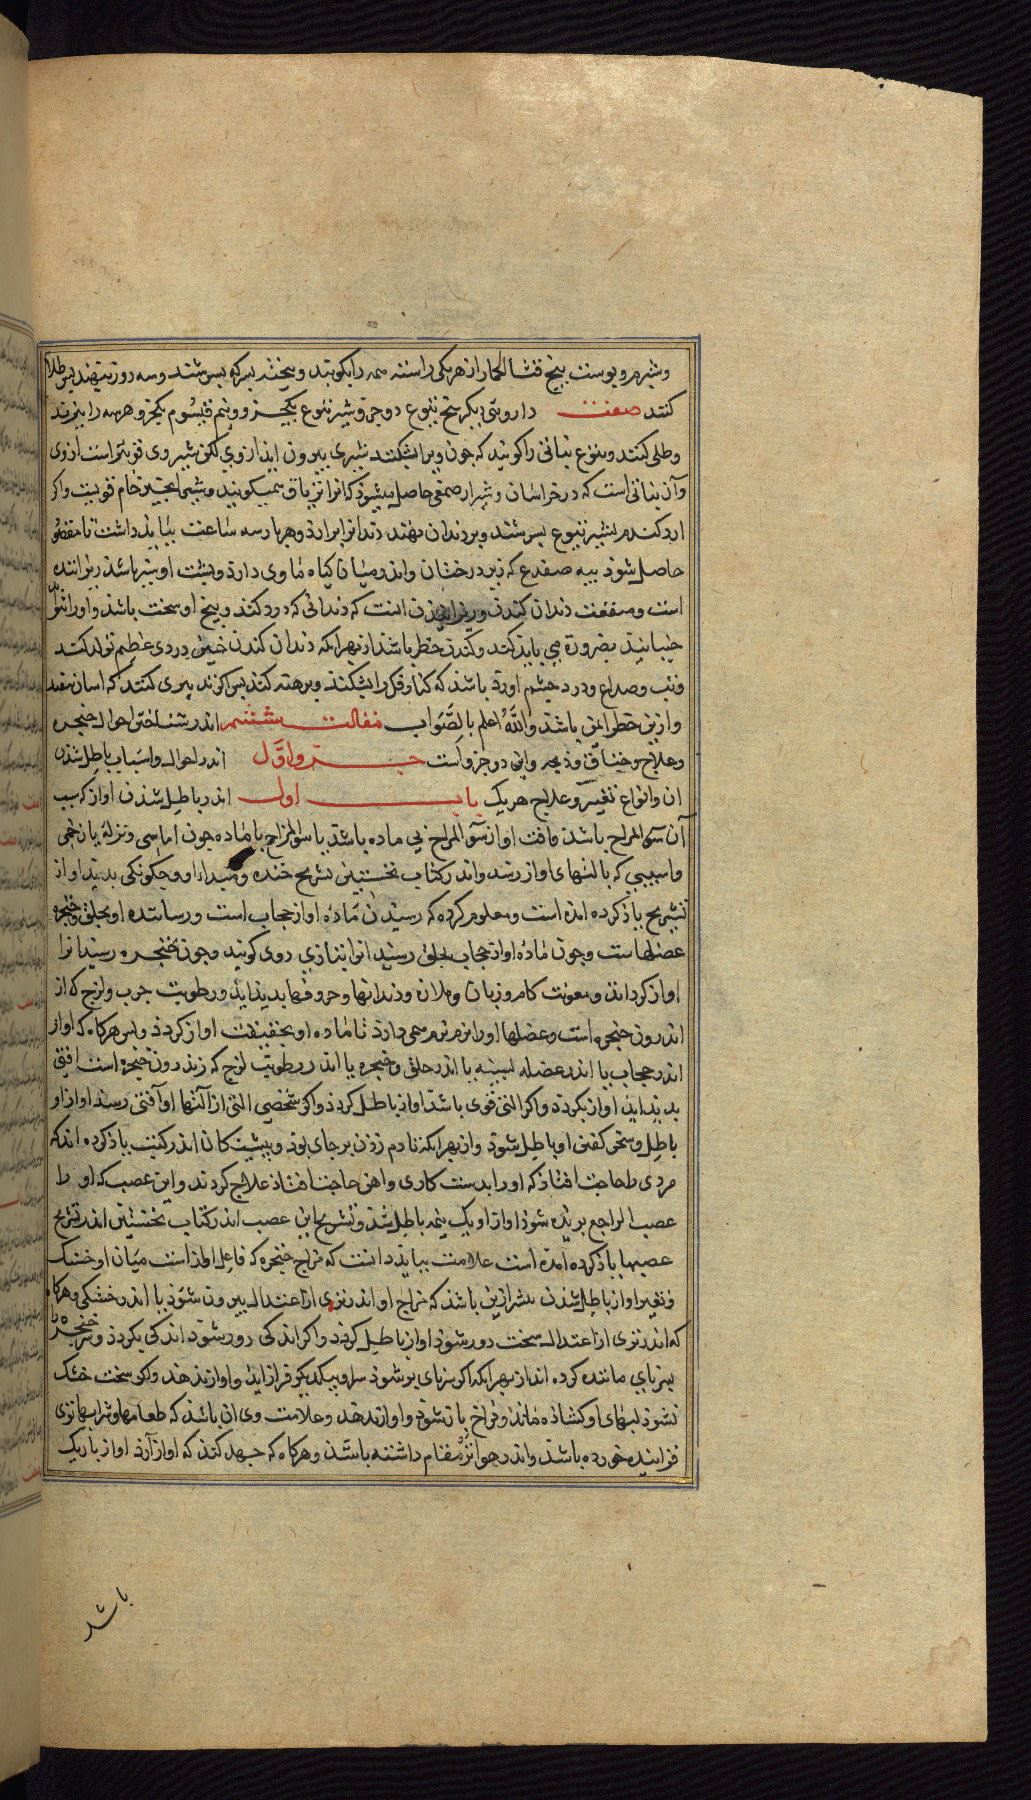 وشبرم وپوست بیخ قثا الحمار از هریکی راستا همه را بکوبند و بپخته بسرکه بسرشند وسه روز بنهند پس طلا
کنند صفت داروی دیگر بیخ یتوع دو جزو شیر یتوع یکجزو و نیم قیسوم یکجزو و هرسه را بپزند
وطلی کنند ویتوع نباتی را کویند که جون ویرا بشکنند شیری بیرون اید از وی لکن شیر وی قوتتر است از وی
وآن نباتی است که در خراسان و صمغی حاصل میشود که انرا تریاق میکویند و شیر انجیر خام قویست واکر
ارد کندم بشیر یتوع بسرشند وبر دندان نهند دندانرا برارد وهر بار سه ساعت بباید داشت تا مقصود
حاصل شود پیه ضفدع که زیر درختان واندر میان کیاه ماوی دارد وپشت او سبز باشد ریزاننده
است ومنفعت دندان کندن وریزانیدن انست که دندانی که درد کند وبیخ او سخت باشد واورا نتوان
جنبانید بضرورة می باید کند وکندن خطر باشد از بهر انکه دندان کندن جنین دردی عظیم تولد کند
وتب وصداع ودرد چشم اورد باشد که کناره فک را بشکند وبرهنه کند پس اکر تدبیری کنند که اسان بیفتد
وازین خطر ایمن باشد والله اعلم بالصواب مقالت ششم اندر شناختن احوال حنجره
وعلاج خناق وذبحه واین دو جزو است جزو اول اندر احوال واسباب باطل شدن
ان وانواع تغیر وعلاج هریک باب اول اندر باطل شدن اواز که سبب
آن سوء المزاج باشد وافت اواز سوء المزاج بی ماده باشد یا سوء المزاج با ماده جون اماسی ونزلة یا زخمی
واسیبی که بالتهای اواز رسد واندر کتاب نخستین تشریح حنجره ومبداء او وچکونکی بدید اواز
تشریح یاذ کرده امده است ومعلوم کرده که رسیدن ماده اواز حجاب است ورساننده او بحلق وحنجره
عضلهاست وجون ماده اواز حجاب بحلق رسید انرا بتازی دوی کویند وجون بحنجره رسید انرا
اواز کرداند ومعونت کام وزبان وملازه ودندانها وحروفها بدیذ اید ورطوبت جرب ولزج که از
اندرون حنجره است وعضلها اورا نرم نرم می دارد تا ماده او بحقیقت اواز کردد وپس هرکاه که اواز
اندر حجاب یا اندر عضله سینه یا اندر حلق وحنجره یا اندر رطوبت لزج که اندرون حنجره است افتی
بدید اید اواز بکردد واکر افتی قوی باشد اواز باطل کردد واکر شخصی التی از التها او آفتی رسد اواز او
باطل وسخن کفتن او باطل شود واز بهر انکه تا دم زدن بر جای بود وپیشینکان اندر کتب یاذ کرده اند که
مردی را حاجت افتاذ که اورا بدست کاری واهن حاجت افتاد علاج کردند واین عصب که او را
عصب الراجع بریده شود اواز او یک نیمه باطل شد وتشریح این عصب اندر کتاب نخستین اندر تشریح
عصبها یاذ کرده آمده است علامت بباید دانست که مزاج حنجره که فاعل اواز است میان او خشک
وتغیر اواز باطل شدن بیشتر ازین باشد که مزاج او اندر تری از اعتدال بیرون شود یا اندر خشکی وهرکاه
که اندر تری از اعتدال سخت دور شود اواز باطل کردد واکر اندکی دور شود اندکی بکردد وسر حنجره را
بسر نای ماننده کرده اند از بهر انکه اکر سر نای تر شود سرا وبیکدیکر فراز اید واواز ندهد واکر سخت خشک
نشود لبهای او کشاده ماند وفراخ باز شود واواز ندهد وعلامت وی ان باشد که طعامها وشرابها تری
فزاینده خورده باشد واندر هوا تر مقام داشته باشد وهرکاه که جهد کند که اواز آرد اواز باریک
باشد